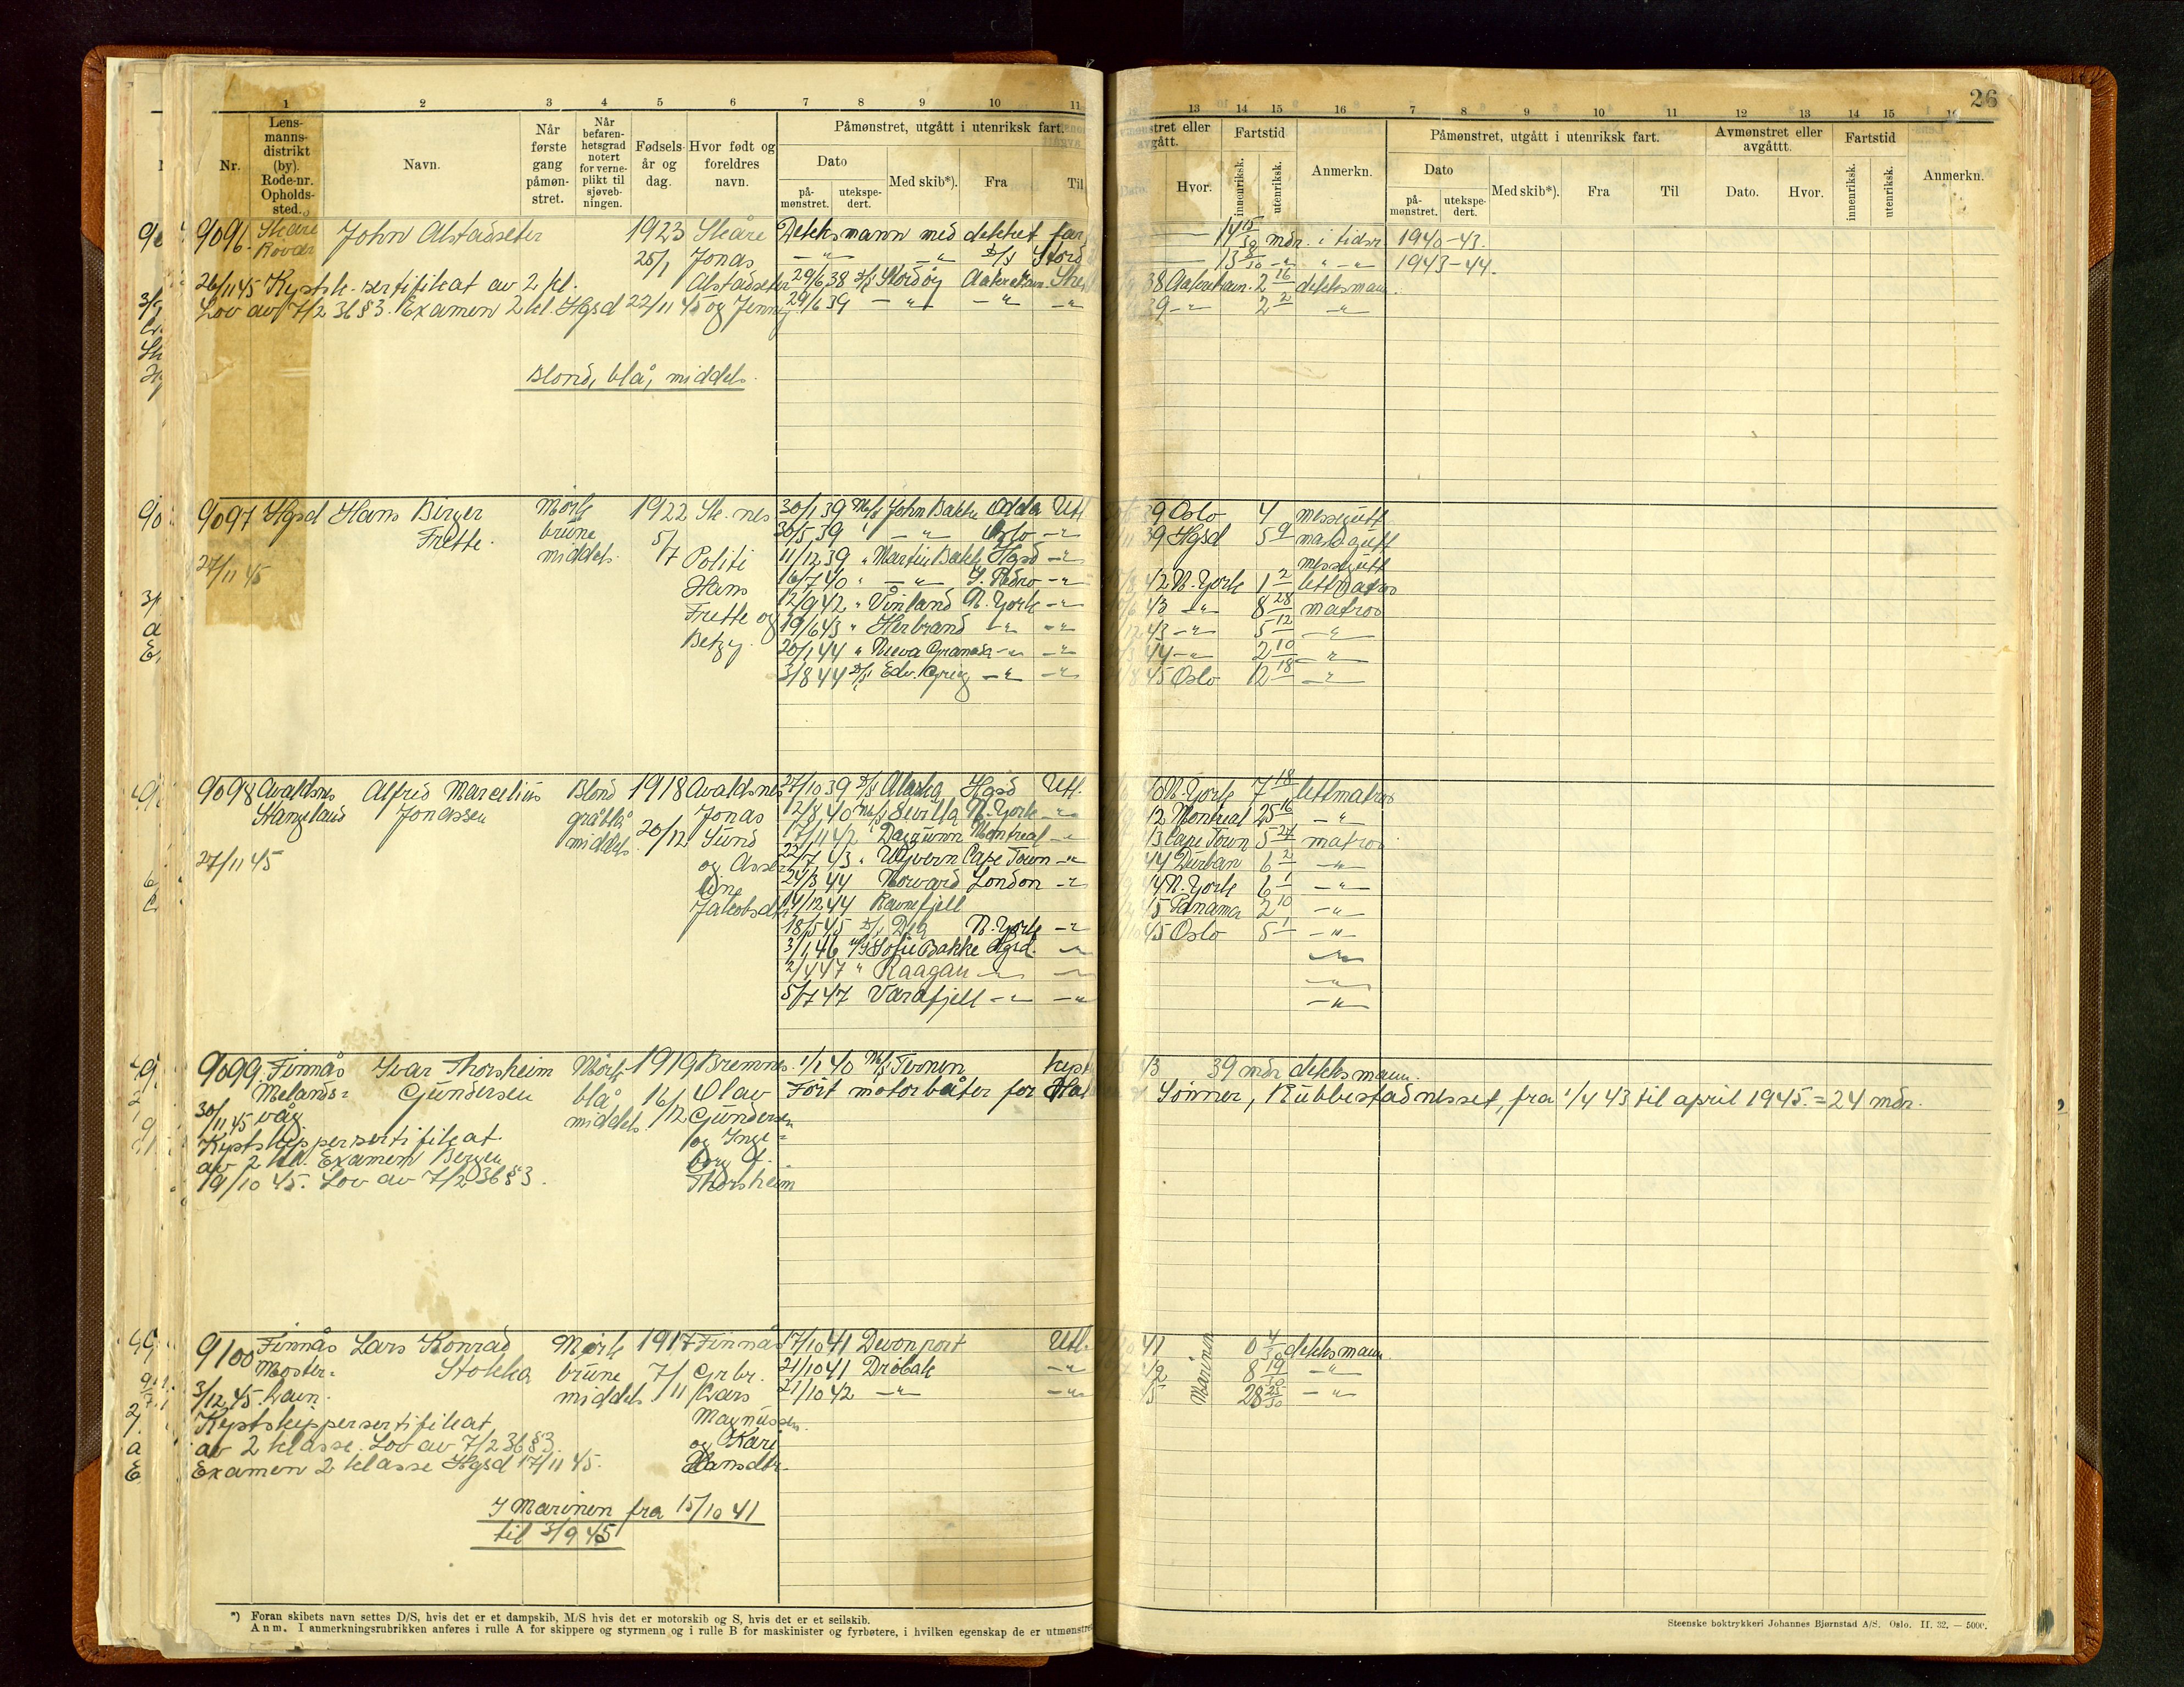 26
1 2 3 4 5 6 7 8 9 10 11
13 14 15 16 7 8 9 10 11 12 13 14 15 16
Nr.
Lens-
manns-
distrikt
(by).
Rode-nr.
Opholds-
sted.
Navn.
Når
første
gang
påmøn-
stret.
Når
befaren-
hetsgrad
notert
for verne-
plikt til
sjøveb-
ningen.
Fødsels-
år og
dag.
Hvor født og
foreldres
navn.
Påmønstret, utgått i utenriksk fart.
Dato
på-
mønstret.
utekspe-
dert.
Med skib*).
Fra
Til
Hvor.
Fartstid
innenriksk.
utenriksk.
Anmerkn.
Påmønstret, utgått i utenriksk fart.
Dato
på-
mønstret.
utekspe-
dert.
Med skib*).
Fra
Til
Avmønstret eller
avgåttt.
Dato.
Hvor.
Fartstid
innenriksk.
utenriksk.
Anmerkn.
9096 Skåre John Alstadseter 1923 Skåre Dekksmann med dekket far
Røvær 25/1 Jonas — " — " D/S Stord
26/11 45 Kystsk. sertifikat av 2 kl. Alstadseter 29/6 38 D/S Stordøy Aakrehavn
Lov av 7/2 36 § 3. Examen 2 kl. Hgsd 22/11 45 og Jenny 29/6 39 — " — — " — — " —
Blond, blå, middels.
14 15/30 mdr. i tidsr. 1940-43.
1943-44.
38 Aakrehavn. 2 16 dekksmann.
39 — " — 2 2 — " —
9097 Hgsd Hans Birger Mørk 1922 Sk.nes 30/1 39 M/S John Bakke Odda Utl
Frette. brune 5/7 30/5 39 " — " — Oslo — " —
27/11 45 middels. Politi 11/12 39 " Martin Bakke Hgsd — " —
Hans 16/7 40 " — " — S. Pedro — " —
Frette og 12/9 42 " Vinland N. York — " —
Betzy. 19/6 43 " Herbrand — " — — " —
20/1 44 " Nueva Granada — " — — " —
3/8 44 D/S Edv. Grieg — " — — " —
39 Oslo 4 messegutt
39 Hgsd 5 9 maskgutt
messegutt
42 N. York 1 2 lettmatros
43 — " — 8 28 matros
43 — " — 5 12 — " —
44 — " — 2 10 — " —
45 Oslo 12 18 — " —
9098 Avaldsnes Alfred Marcelius Blond 1918 Avaldsnes 27/10 39 D/S Alaska Hgsd Utl.
Stangeland Jonassen gråblå 20/12 Jonas 12/8 40 M/S Sevilla N. York — " —
middels. Sund 17/11 42 Dagrunn Montreal — " —
27/11 45 og Asse 22/7 43 " Wyvern Cape Town — " —
line 24/3 44 Norvard London — " —
Jakobsdtr 14/12 44 Ravnefjell
18/5 45 D/S Dea N. York — " —
3/1 46 M/S Sofie Bakke Hgsd. — " —
2/4 47 " Raagan — " — — " —
5/7 47 Varafjell — " — — " —
40 N. York 7 18 lettmatros
42 Montreal 25 16 — " —
43 Cape Town 5 27 matros
44 Durban 6 2 — " —
44 N. York 6 1 — " —
45 Panama 2 10 — " —
45 Oslo 5 1 — " —
— " —
— " —
— " —
9099 Finnås Ivar Thorsheim Mørk 1919 Bremnes. 1/1 40 M/S Teonen kyst
Melands= Gundersen blå 16/12 Olav Ført motorbåter for Hal
våg. middels. Gundersen
30/11 45 og Inge=
Kystskippersertifikat. borg O.
av 2 kl. Examen Bergen Thorsheim
19/10 45. Lov av 7/2 36 § 3.
43 39 mdr dekksmann.
Sønner, Rubbestadnesset, fra 1/4 43 til april 1945. = 24 mdr.
9100 Finnås Lars Konrad Mørk 1917 Finnås 17/10 41 Devonport Utl.
Moster= Stokka brune 7/11 Grbr. 21/10 41 Drøbak — " —
3/12 45. havn. middels Lars 21/10 42 — " — — " —
Kystskippersertifikat Magnussen
av 2 klasse. Lov av 7/2 36 § 3. og Kari
Examen 2 klasse Hgsd 17/11 45. Hansdtr.
I Marinen fra 15/10 41
til 3/9 45
41 Marinen 0 4/30 dekksmann.
8 19/30 — " —
28 25/30 — " —
*) Foran skibets navn settes D/S, hvis det er et dampskib, M/S hvis det er motorskib og S, hvis det er et seilskib.
Anm. I anmerkningsrubrikken anføres i rulle A for skippere og styrmenn og i rulle B for maskinister og fyrbøtere, i hvilken egenskap de er utmønstre
Steenske boktrykkeri Johannes Bjørnstad A/S. Oslo. II. 32. — 5000.